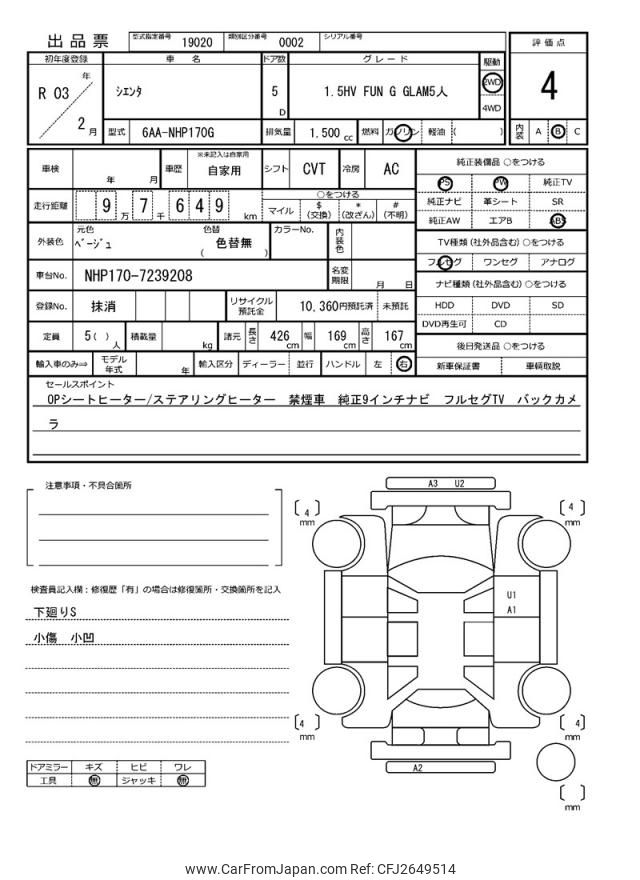 出品票 型式指定番号 19020 類別区分番号 0002 シリアル番号
評価点
4
初年度登録 車名 ドア数 グレード 駆動
R 03 年 2 月 シエンタ 5 D 1.5HV FUN G GLAM5人 2WD
4WD
型式 6AA-NHP170G 排気量 1.500 cc 燃料 ガソリン 軽油 ( )
内装 A B C
車検 年 月 車歴 ※未記入は自家用 自家用 シフト CVT 冷房 AC
走行距離 9 万 7 千 6 4 9 km
○をつける
マイル $(交換) *(改ざん) #(不明)
外装色 元色 ベージュ 色替 ( 色替無 ) カラーNo. 内装色
車台No. NHP170-7239208 名変期限 月 日
登録No. 抹消 リサイクル預託金 10,360円預託済 未預託
定員 5( )人 積載量 kg 諸元 長さ 426 cm 幅 169 cm 高さ 167 cm
輸入車のみ⇒ モデル年式 年 輸入区分 ディーラー 並行 ハンドル 左 右
純正装備品 ○をつける
PS PW 純正TV
純正ナビ 革シート SR
純正AW エアB ABS
TV種類 (社外品含む) ○をつける
フルセグ ワンセグ アナログ
ナビ種類 (社外品含む) ○をつける
HDD DVD SD
DVD再生可 CD
後日発送品 ○をつける
新車保証書 車輌取説
セールスポイント
OPシートヒーター/ステアリングヒーター 禁煙車 純正9インチナビ フルセグTV バックカメ
ラ
注意事項・不具合箇所
検査員記入欄：修復歴「有」の場合は修復箇所・交換箇所を記入
下廻りS
小傷 小凹
ドアミラー キズ ヒビ ワレ
工具 無 ジャッキ 無
A3 U2
[ 4 ] mm
[ 4 ] mm
U1
A1
[ 4 ] mm
[ 4 ] mm
A2
[ ] mm
www.CarFromJapan.com Ref: CFJ2649514